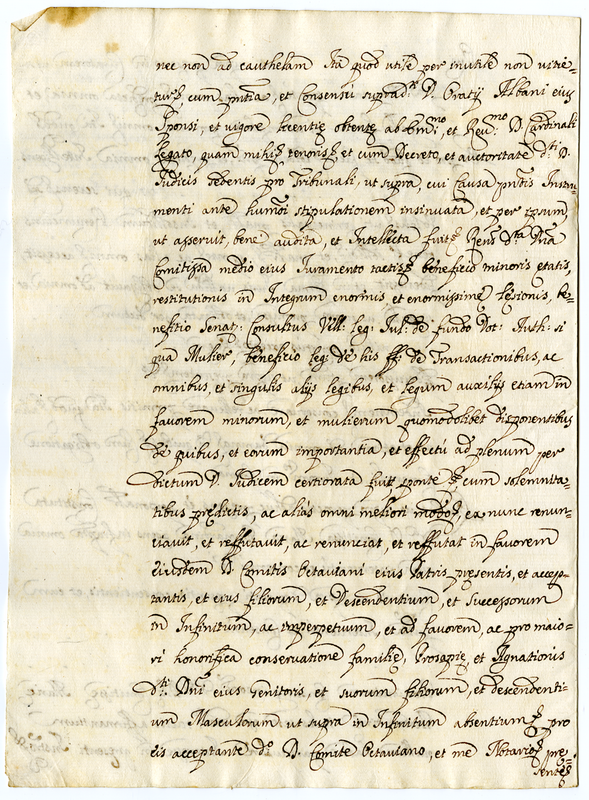 nec non ad cauthelam Ita quod utile per inutile non vitie=
tur, cum pntia, et Consensu suprad.ti D. Oratij Albani eius
Sponsi, et vigore licentię obtentę ab Emi.mo, et Reu.mo D. Cardinali
Legato, quam mihi tenoris, et cum Decreto, et auctoritate d.ti D.
Iudicis sedentis pro Tribunali, ut supra, cui causa pntis Instru-
menti ante humõi stipulationem insinuata, et per ipsum,
ut asseruit, bene audita, et Intellecta fuit, D.na
Comitissa medio eius Iuramento tactis beneficio minoris etatis,
restitutionis in Integrum enormis et enormissimę lęsionis, be-
nefitio Senat: Consultus Vell: leg: Iul: de fundo Dot: Auth: si
qua Mulier, beneficio leg: de his ff: de Transactionibus, ac
omnibus, et singulis alijs legibus, et legum auxilijs etiam in
favorem minorum, et mulierum quomodolibet disponentibus
de quibus, et earum importantia, et effectu ad plenum per
dictum D. Iudicem certiorata fuit sponte cum solemnita-
tibus prędictis, ac alias omni meliori modo, ex nunc renun-
ciavit, et reffutavit, ac renunciat, et reffutat in favorem
eiusdem D. Comitis Octaviani eius Patris pręsentis, et accep-
tantis, et eius filiorum, et Descendentium, et successorum
in Infinitum, ac imperpetuum, et ad favorem, ac pro maio-
ri honorifica conservatione familię, Prosapię et Agnationis
d.ti Dni eius Genitoris, et suorum filiorum, et descendenti-
um Masculorum ut supra in Infinitum absentium pro
eis acceptante d.o D. Comite Octaviano, et me Notario pre=
sente